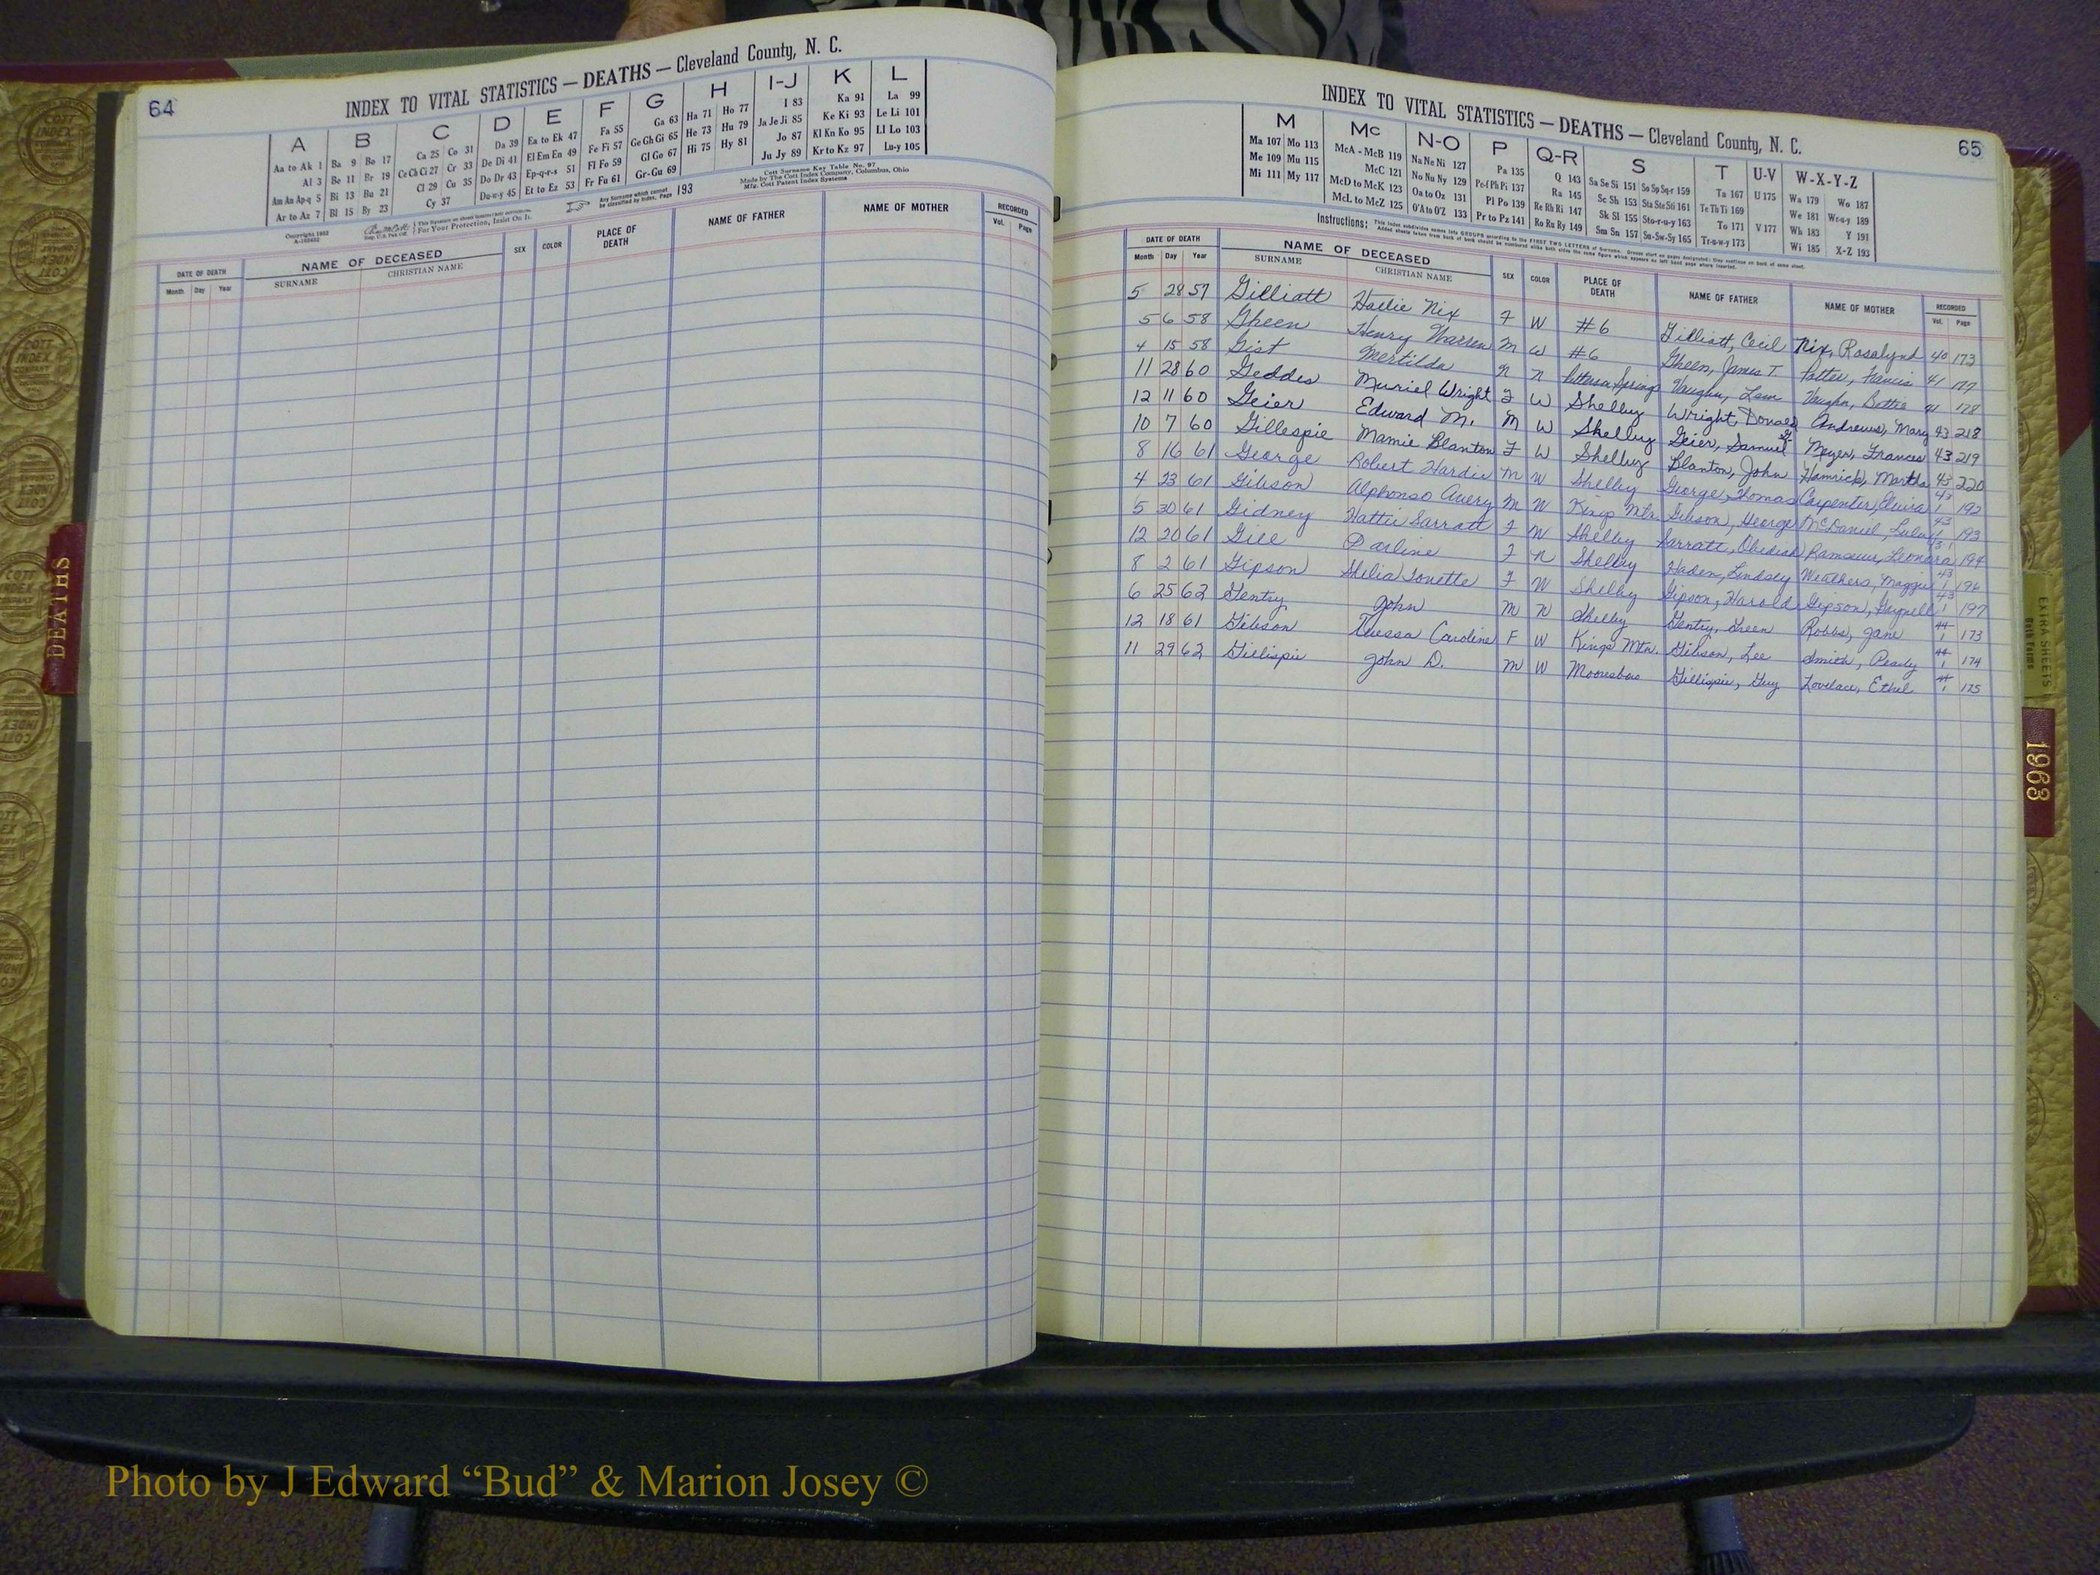 64
INDEX TO VITAL STATISTICS — DEATHS — Cleveland County, N. C.
A B C D E F G H I-J K L
Aa to Ak 1 Ba 9 Bo 17 Ca 25 Co 31 Da 39 Ea to Ek 47 Fa 55 Ga 63 Ha 71 Ho 77 I 83 Ka 91 La 99
Al 3 Be 11 Br 19 Ce Ch Ci 27 Cr 33 De Di 41 El Em En 49 Fe Fi 57 Ge Gh Gi 65 He 73 Hu 79 Ja Je Ji 85 Ke Ki 93 Le Li 101
Am An Ap-q 5 Bi 13 Bu 21 Cl 29 Cu 35 Do Dr 43 Ep-q-r-s 51 Fl Fo 59 Gl Go 67 Hi 75 Hy 81 Jo 87 Kl Kn Ko 95 Ll Lo 103
Ar to Az 7 Bl 15 By 23 Cy 37 Du-w-y 45 Et to Ez 53 Fr Fu 61 Gr-Gu 69 Ju Jy 89 Kr to Kz 97 Lu-y 105
Copyright 1932
For Your Protection, Insist On It.
Any Surname which cannot be classified by Index, Page 193
Cott Surname Key Table No. 97
Made by The Cott Index Company, Columbus, Ohio
Mfg. Cott Patent Index Systems
DATE OF DEATH NAME OF DECEASED SEX COLOR PLACE OF DEATH NAME OF FATHER NAME OF MOTHER RECORDED
Month Day Year SURNAME CHRISTIAN NAME Vol. Page
65
INDEX TO VITAL STATISTICS — DEATHS — Cleveland County, N. C.
M Mc N-O P Q-R S T U-V W-X-Y-Z
Ma 107 Mo 113 McA - McB 119 Na Ne Ni 127 Pa 135 Q 143 Sa Se Si 151 So Sp Sq-r 159 Ta 167 U 175 Wa 179 Wo 187
Me 109 Mu 115 McC 121 No Nu Ny 129 Pe-f Ph Pi 137 Ra 145 Sc Sh 153 Sta Ste Sti 161 Te Th Ti 169 We 181 Wr-u-y 189
Mi 111 My 117 McD to McK 123 Oa to Oz 131 Pl Po 139 Re Rh Ri 147 Sk Sl 155 Sto-r-u-y 163 To 171 V 177 Wh 183 Y 191
McL to McZ 125 O'A to O'Z 133 Pr to Pz 141 Ro Ru Ry 149 Sm Sn 157 Su-Sw-Sy 165 Tr-u-w-y 173 Wi 185 X-Z 193
Instructions: This index subdivides names into GROUPS according to the FIRST TWO LETTERS of Surname.
DATE OF DEATH NAME OF DECEASED SEX COLOR PLACE OF DEATH NAME OF FATHER NAME OF MOTHER RECORDED
Month Day Year SURNAME CHRISTIAN NAME Vol. Page
5 28 57 Gilliatt Hallie Nix F W #6 Gilliatt, Cecil Nix, Rosalynd 40 173
5 6 58 Gheen Henry Warren M W #6 Gheen, James T. Potter, Francis 41 177
4 15 58 Gist Mertilda n Springs Vaughn, Lem Vaughn, Bettie 41 178
11 28 60 Geddes Muriel Wright F W Shelby Wright, Andrews, Mary 43 218
12 11 60 Geier Edward M. M W Shelby Geier, Samuel Meyer, Frances 43 219
10 7 60 Gillespie Mamie Blanton F W Shelby Blanton, John Hamrick, Martha 43 220
8 16 61 George Robert Hardie M W Shelby George, Thomas Carpenter, Elvira 43 1 192
4 23 61 Gibson Alphonso Avery M W Kings Mtn. Gibson, George McDaniel, Lula 43 1 193
5 30 61 Gidney Hattie Sarratt F W Shelby Sarratt, Obediah Ramseur, Leonora 43 1 194
12 20 61 Gill Darline F n Shelby Haden, Lindsey Weathers, Maggie 43 1 196
8 2 61 Gipson Shelia Tonette F W Shelby Gipson, Harold Gipson, 43 1 197
6 25 62 Gentry John M n Shelby Gentry, Green Robbs, Jane 44 1 173
12 18 61 Gibson Caroline F W Kings Mtn. Gibson, Lee Smith, 44 1 174
11 29 62 Gillispie John D. M W Mooresboro Gillispie, Guy Lovelace, Ethel 44 1 175
DEATHS
EXTRA SHEETS
Both Forms
1963
Photo by J Edward “Bud” & Marion Josey ©